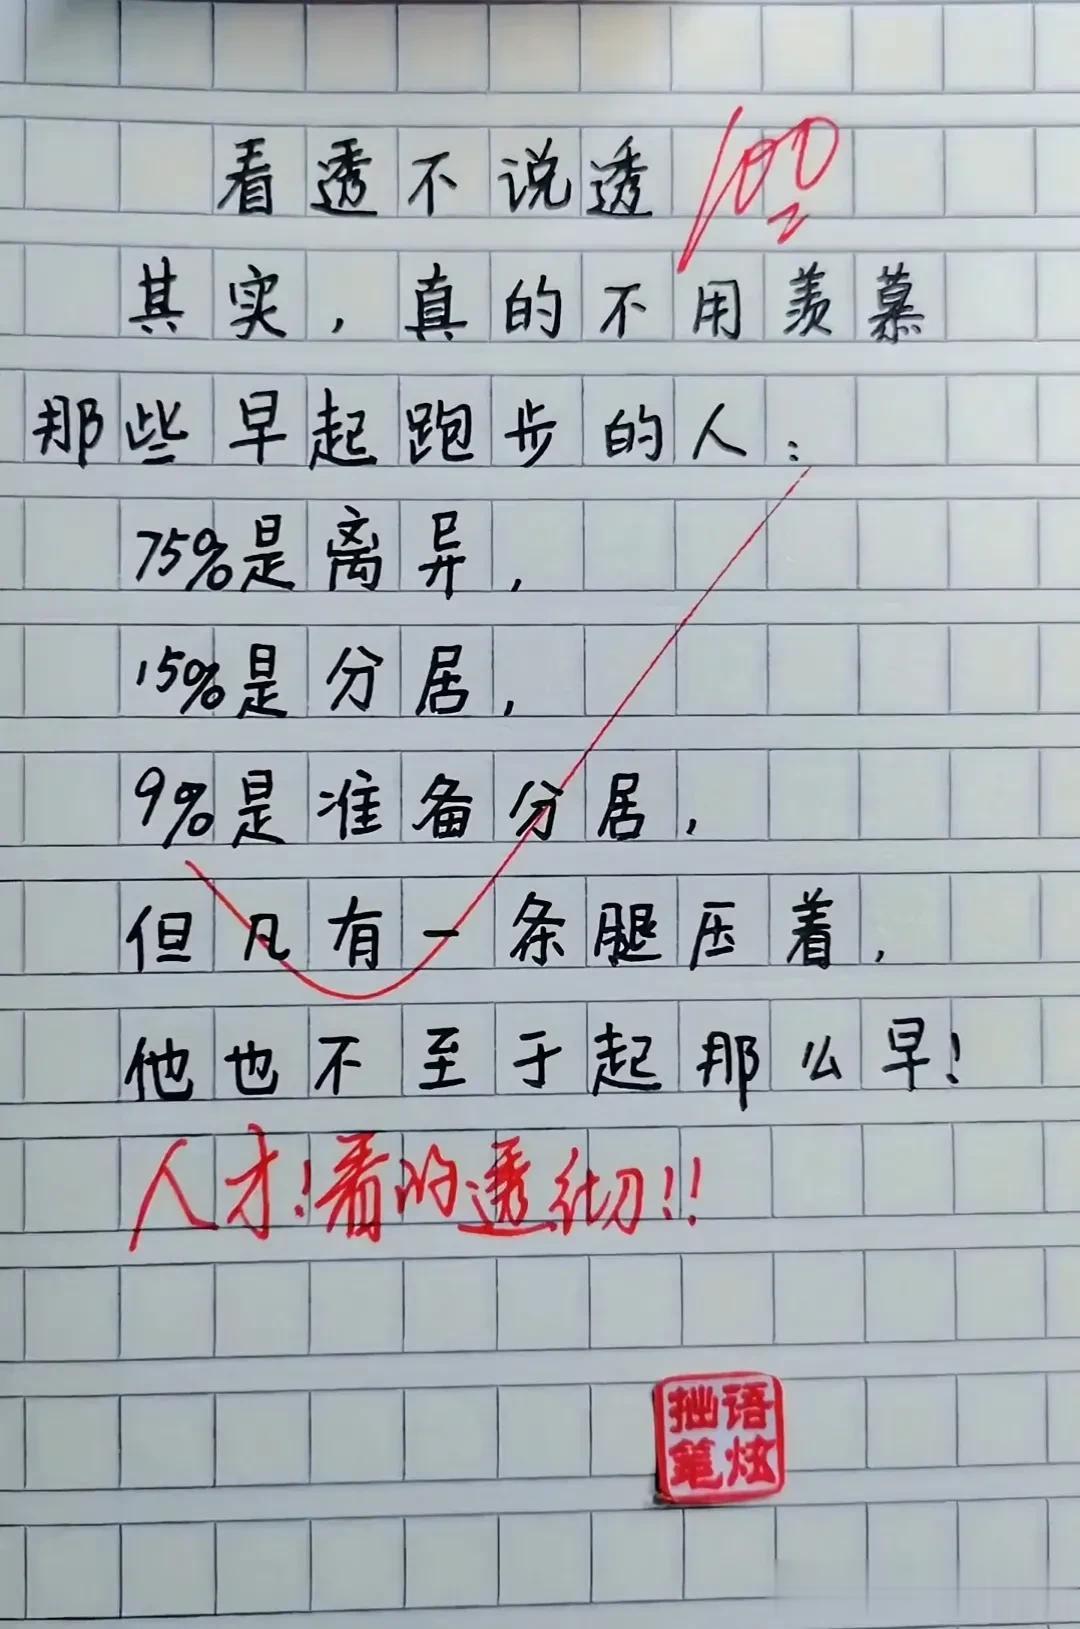 看透不说透 100
其实，真的不用羡慕
那些早起跑步的人：
75%是离异，
15%是分居，
9%是准备分居，
但凡有一条腿压着，
他也不至于起那么早！
人才！看的透彻！！
语炫拙笔